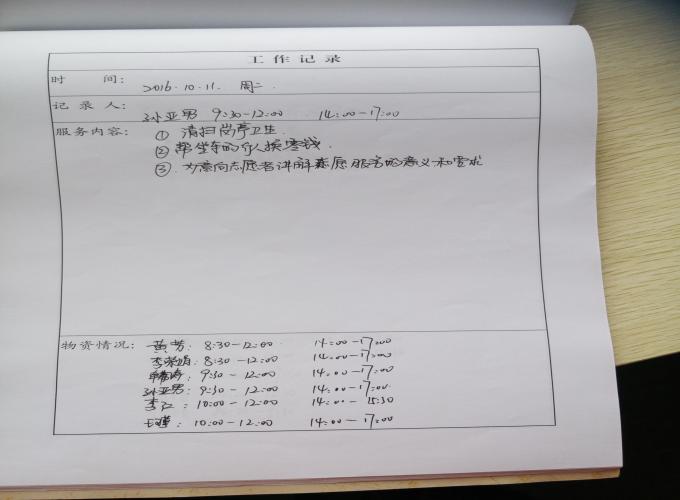 工作记录
时 间： 2016.10.11. 周二.
记录人： 孙亚男 9:30-12:00 14:00-17:00
服务内容： ① 清扫岗亭卫生.
② 帮坐车的行人换零钱.
③ 为意向志愿者讲解志愿服务的意义和要求
物资情况： 黄芳: 8:30-12:00 14:00-17:00
李荣娟: 8:30-12:00 14:00-17:00
9:30-12:00 14:00-17:00
孙亚男: 9:30-12:00 14:00-17:00.
李江: 10:00-12:00 14:00-15:30
10:00-12:00 14:00-17:00